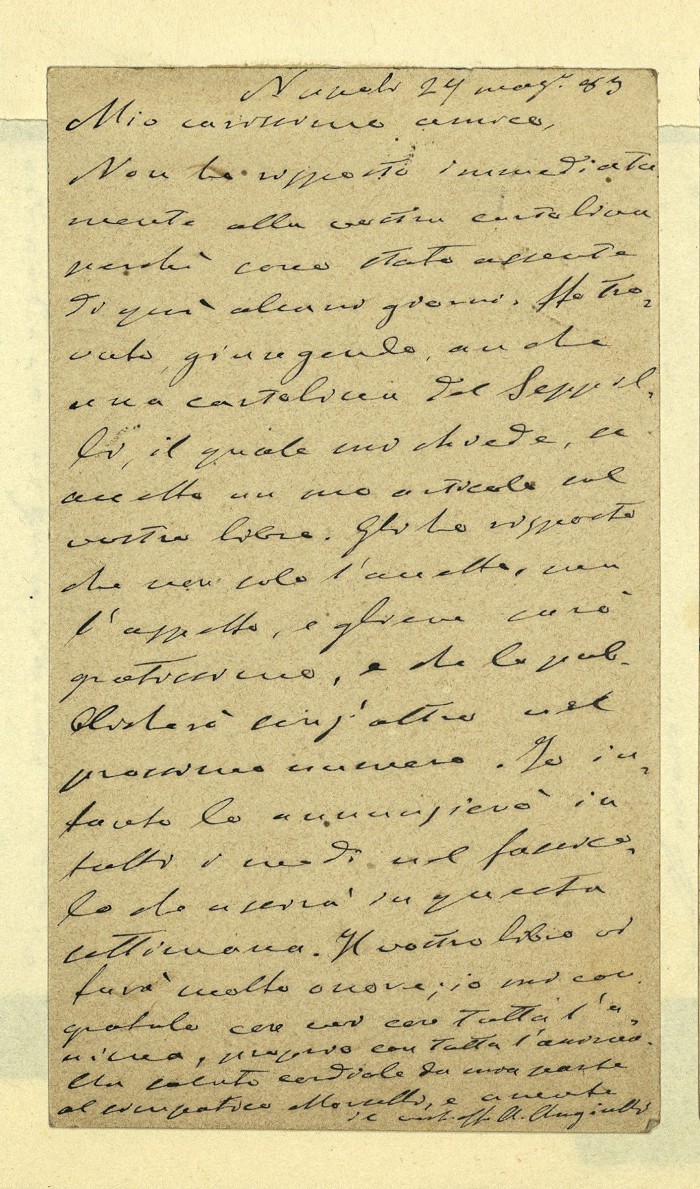 Napoli 24 mag. 83
Mio carissimo amico,
Non ho risposto immediata
mente alla vostra cartolina
perchè sono stato assente
di quì alcuni giorni. Ho tro-
vato, giungendo, anche
una cartolina del Seppil-
li, il quale mi chiede, se
accetto un suo articolo sul
vostro libro. Gli ho risposto
che non solo l'accetto, ma
l'aspetto, e gliene sarò
gratissimo, e che lo pub-
blicherò senz'altro nel
prossimo numero. Io in-
tanto lo annunzierò in
tutti i modi nel fascico-
lo che uscirà in questa
settimana. Il vostro libro vi
farà molto onore; io mi con
gratulo con voi con tutta l'a-
nima, proprio con tutta l'anima.
Un saluto cordiale da mia parte
al simpatico Morselli, e amate
il vostro aff. A. Angiulli